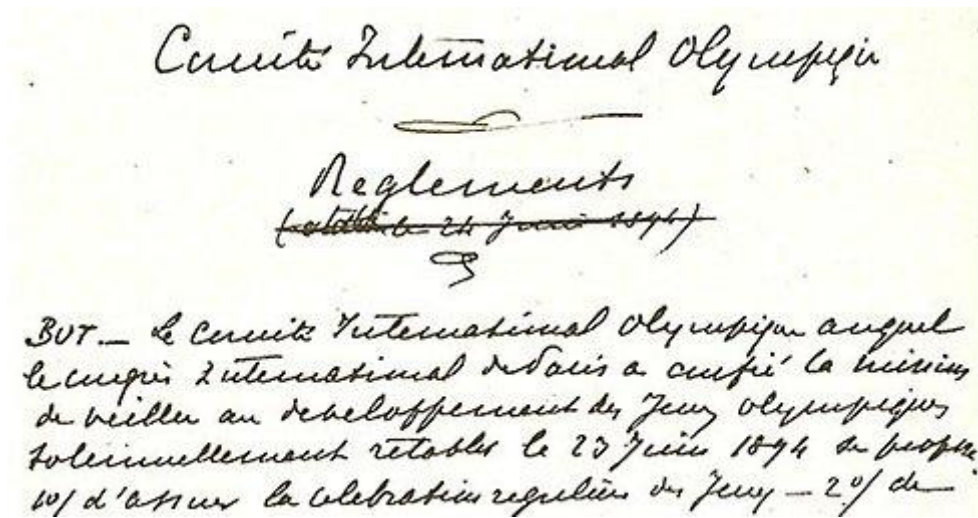 Comité International Olympique
Reglements
(etabli le 24 Juin 1894)
BUT. — Le Comité International Olympique auquel
le congrès International de Paris a confié la mission
de veiller au developpement des Jeux olympiques
solennellement rétablis le 23 Juin 1894 se propose
1o/ d'assurer la celebration reguliere des Jeux — 2o/ de